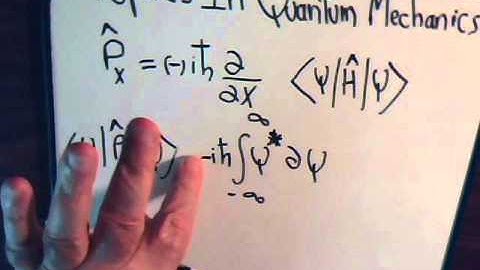 In Quantum Mechanics
P̂ₓ = (-)iħ ∂/∂x ⟨Ψ|Ĥ|Ψ⟩
-iħ ∫_{-∞}^{∞} Ψ* ∂Ψ